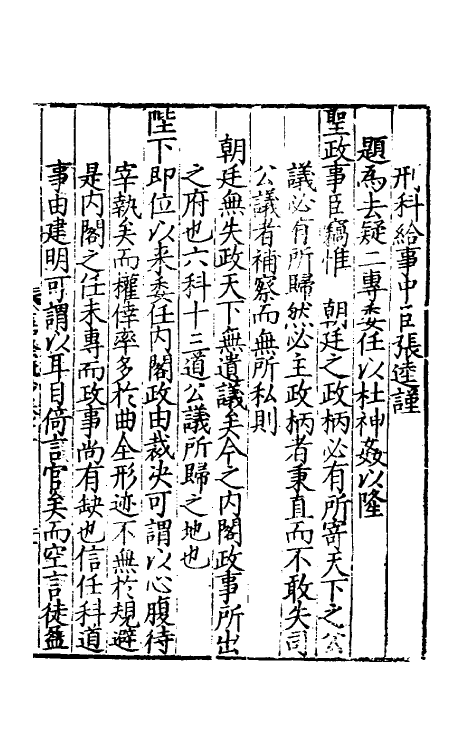 刑科給事中臣張逵謹
題為去疑二專委任以杜神姦以隆
聖政事臣竊惟 朝廷之政柄必有所寄天下之公
議必有所歸然必主政柄者秉直而不敢失司
公議者補察而無所私則
朝廷無失政天下無遺議矣今之內閣政事所出
之府也六科十三道公議所歸之地也
陛下即位以来委任内閣政由裁决可謂以心腹待
宰執矣而權倖率多於曲全形迹不無於規避
是内閣之任未專而政事尚有缺也信任科道
事由建明可謂以耳目倚言官矣而空言徒益